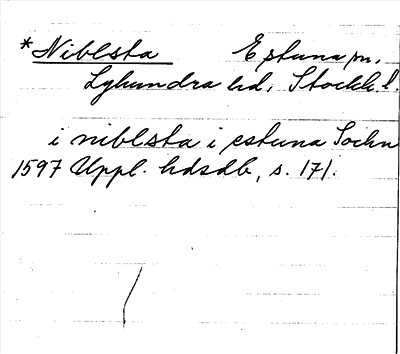 *Niblsta Estuna sn.
Lyhundra hd, Stockh. l.
i niblsta i estuna Sochn
1597 Uppl. hdsdb, s. 171.